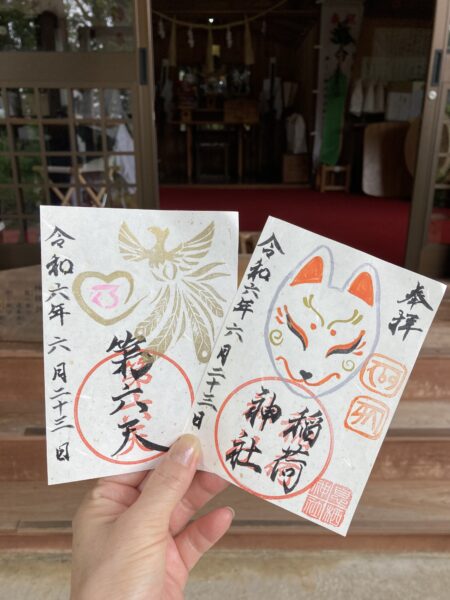 令和六年 六月二十三日
第六天
奉拝
稲荷
神社
令和六年 六月二十三日